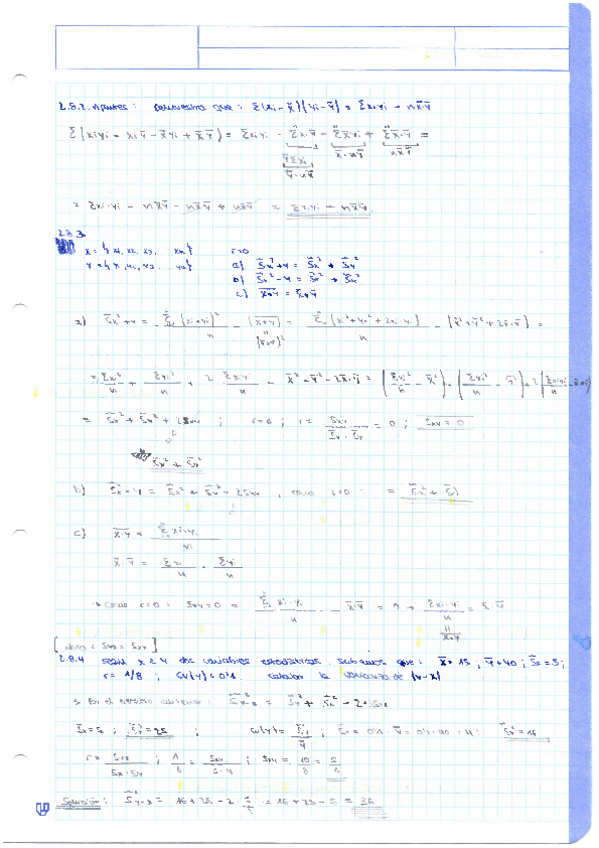 2.8.2. Apuntes: Demuestra que: Σ(xi - x̄)(yi - ȳ) = Σxi·yi - n x̄·ȳ
Σ(xiyi - xi ȳ - x̄ yi + x̄ ȳ) = Σxiyi - Σxi·ȳ - Σx̄yi + Σx̄·ȳ =
ȳΣxi
x̄·nȳ
nx̄ȳ
ȳ·nx̄
= Σxi·yi - nx̄ȳ - nx̄ȳ + nx̄ȳ = Σxi·yi - nx̄ȳ
2.8.3.
x = { x1, x2, x3, xn } r=0
y = { y1, y2, y3, yn } a) Sx²+y = Sx² + Sy²
b) Sx²-y = Sx² + Sy²
c) x·y = x̄·ȳ
a) Sx²+y = Σ(xi+yi)² / n - (x+y)² = Σ(xi²+yi²+2xi·yi) / n - (x̄²+ȳ²+2x̄·ȳ) =
(x̄+ȳ)²
= Σxi²/n + Σyi²/n + 2 Σxi·yi/n - x̄² - ȳ² - 2x̄·ȳ = (Σxi²/n - x̄²) + (Σyi²/n - ȳ²) + 2(Σxi·yi/n - x̄·ȳ)
= Sx² + Sy² + 2Sxy ; r=0 ; r = Sxy / Sx·Sy = 0 ; Sxy = 0
Sx² + Sy²
b) Sx²-y = Sx² + Sy² - 2Sxy, como r=0: = Sx² + Sy²
c) x·y = Σxi·yi / n
x̄·ȳ = Σxi/n · Σyi/n
→ Como r=0: Sxy=0 = Σxi·yi/n - x̄·ȳ = 0 → Σxi·yi/n = x̄·ȳ
x·y
[Nota: Sxy = Syx]
2.8.4 Sean x e y dos variables estadísticas. Sabemos que: x̄=15, ȳ=40; Sx=5;
r = 1/8; CV(y)=0'1. Calcular la varianza de (y-x)
→ Por el ejercicio anterior: S²y-x = Sy² + Sx² - 2·Sxy
Sx=5; Sx²=25; CV(y)= Sy/ȳ; Sy = 0'1·ȳ = 0'1·40 = 4; Sy²=16
r = Sxy / Sx·Sy; 1/8 = Sxy / 5·4; Sxy = 20/8 = 5/2
Solución: S²y-x = 16+25-2·5/2 = 16+25-5 = 36